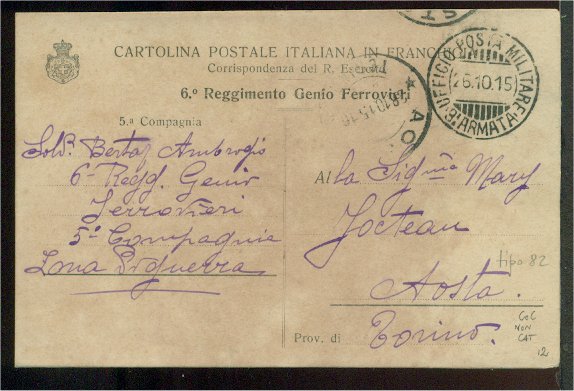 CARTOLINA POSTALE ITALIANA IN FRANCHIGIA
Corrispondenza del R. Esercito
6.º Reggimento Genio Ferrovieri
5.ª Compagnia
UFFICIO POSTA MILITARE
(26.10.15)
3ª ARMATA
AO
Sold. Bertaz Ambrogio
6º Regg. Genio
Ferrovieri
5ª Compagnia
Zona di guerra
Alla Sigⁿᵃ Mary
Jocteau
tipo 82
Aosta.
Prov. di Torino.
CeC
NON
CAT
12